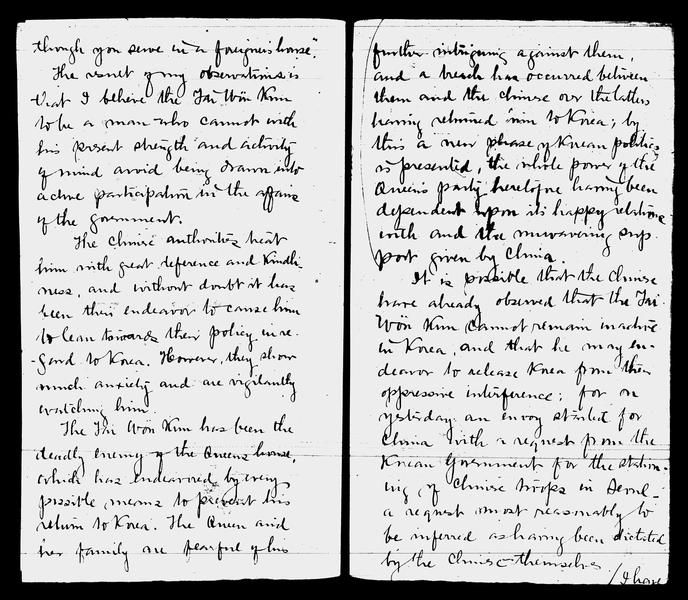 though you serve in a foreigner's house".
The result of my observations is
that I believe the Tai Wön Kun
to be a man who cannot with
his present strength and activity
of mind avoid being drawn into
active participation in the affairs
of the government.
The Chinese authorities treat
him with great deference and kindli-
ness, and without doubt it has
been their endeavor to cause him
to lean towards their policy in re-
gard to Korea. However, they show
much anxiety and are vigilantly
watching him.
The Tai Won Kun has been the
deadly enemy of the Queen's house,
which has endeavored by every
possible means to prevent his
return to Korea. The Queen and
her family are fearful of his
further intriguing against them,
and a breach has occurred between
them and the Chinese over the latters
having returned him to Korea; by
this a new phase of Korean politics
is presented, the whole power of the
Queen's party heretofore having been
dependent upon its happy relations
with and the unwavering sup-
port given by China.
It is possible that the Chinese
have already observed that the Tai
Wön Kun cannot remain inactive
in Korea, and that he may en-
deavor to release Korea from their
oppressive interference; for on
yesterday an envoy started for
China with a request from the
Korean Government for the station-
ing of Chinese troops in Seoul -
a request most reasonably to
be inferred as having been dictated
by the Chinese themselves
/ I have